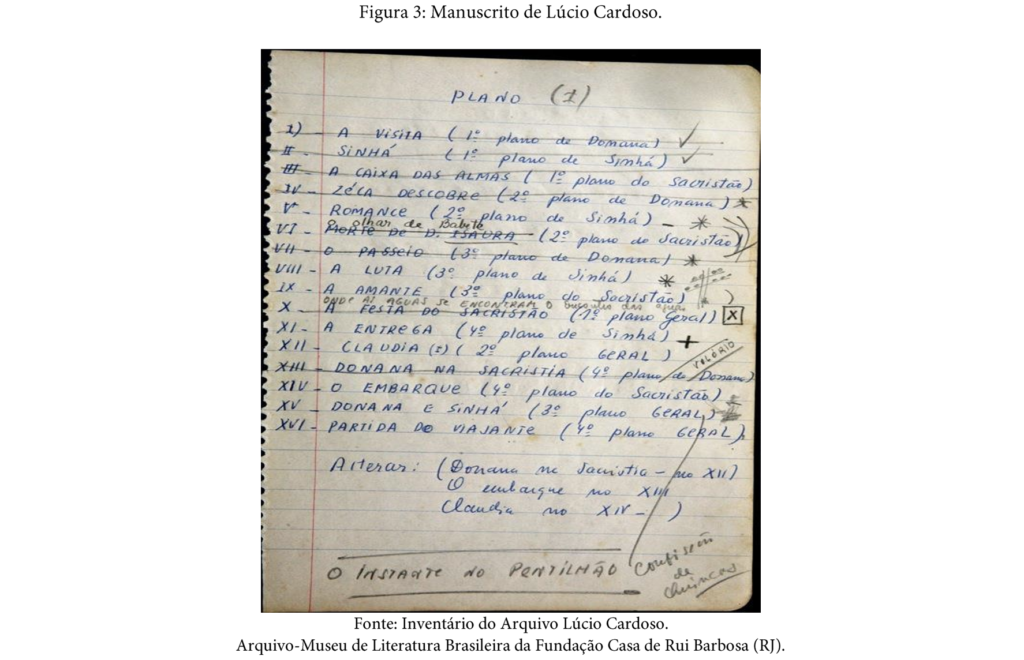 Figura 3: Manuscrito de Lúcio Cardoso.
PLANO (1)
I) - A VISITA (1º plano de Donana)
II - SINHÁ (1º plano de Sinhá)
III - A CAIXA DAS ALMAS (1º plano do Sacristão)
IV - ZÉCA DESCOBRE (2º plano de Donana)
V - ROMANCE (2º plano de Sinhá) -
o olhar de
VI - MORTE DE D. ISAURA (2º plano do Sacristão)
VII - O PASSEIO (3º plano de Donana)
VIII - A LUTA (3º plano de Sinhá)
IX - A AMANTE (3º plano do Sacristão)
ONDE AS AGUAS SE ENCONTRAM O
X - A FESTA DO SACRISTÃO (1º plano Geral) X
XI - A ENTREGA (4º plano de Sinhá) +
XII - CLAUDIA (I) (2º plano GERAL)
XIII - DONANA NA SACRISTIA (4º plano de Donana)
XIV - O EMBARQUE (4º plano do Sacristão)
XV - DONANA E SINHÁ (3º plano GERAL)
XVI - PARTIDA DO VIAJANTE (4º plano GERAL)
Alterar: (Donana na Sacristia - no XII)
O embarque no XIII
Claudia no XIV - )
O INSTANTE NO
Confissão
de
Fonte: Inventário do Arquivo Lúcio Cardoso.
Arquivo-Museu de Literatura Brasileira da Fundação Casa de Rui Barbosa (RJ).